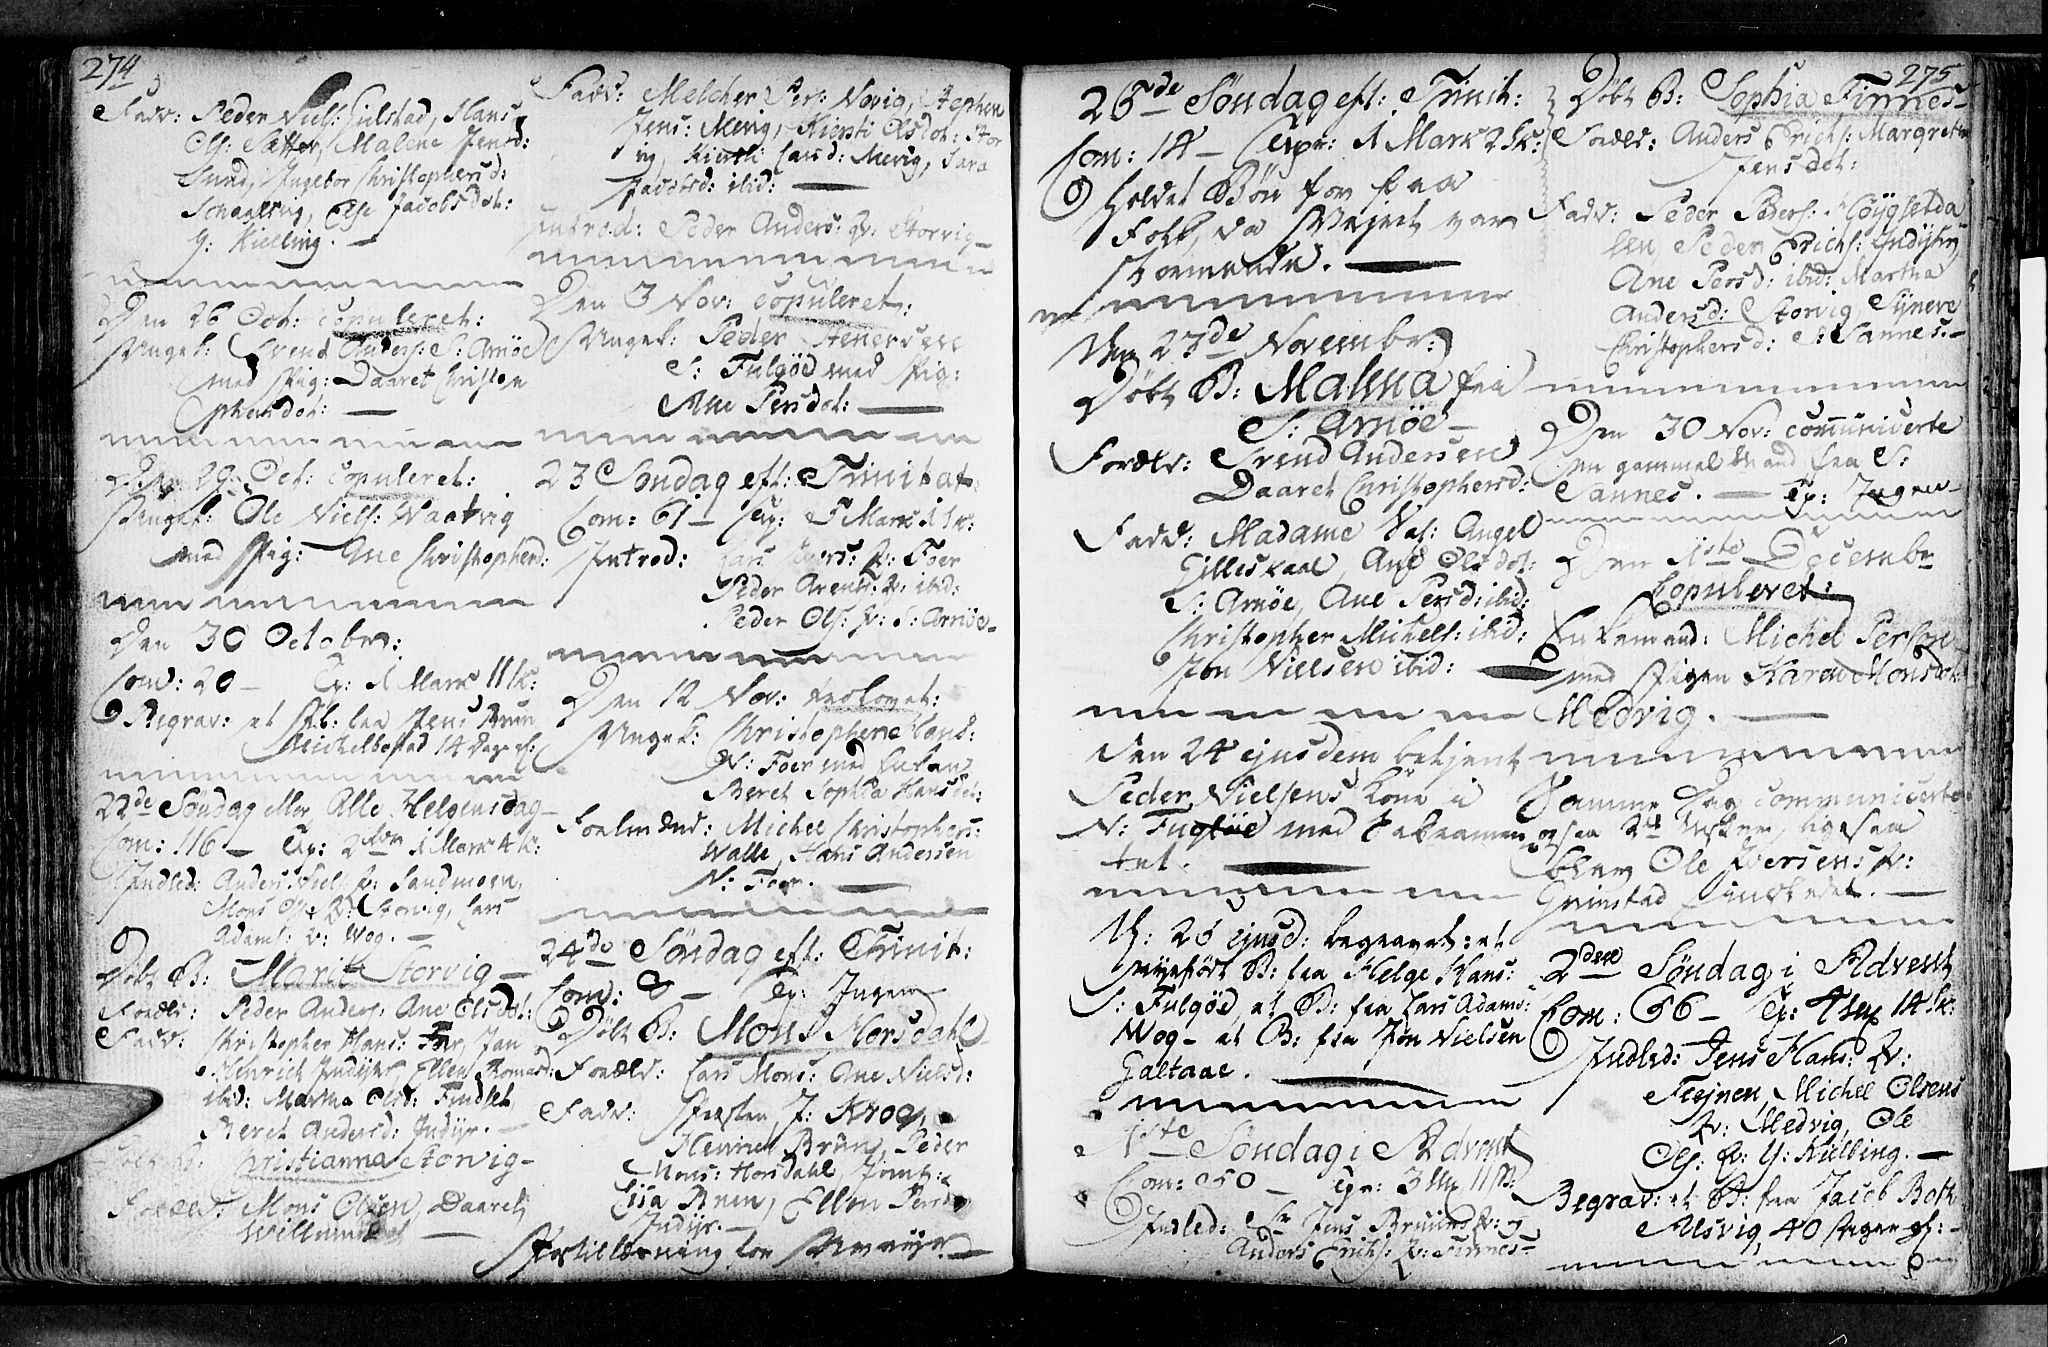 274
Fadd: Peder Niels: Gilstad, Hans
Ols: Sætter, Malene Jensd:
Sund, Ingebor Christophersd:
Schaalsvig, Else Jacobsdot:
Y: Kielling. —
Den 26 Oct: copuleret:
Ungk: Svend Anders: S: Arnöe
med Pig: Daaret Christo
phersdot: —
Den 29 Oct: copuleret:
Ungk: Ole Niels: Waatvig
med Pig: Ane Christophersd:
Den 30 October:
Com: 20 — Exp: 1 Mark 11 sk:
Begrav: et Pb: fra Jens Bruun
Michelbostad 14 Dage gl:
22de Søndag eller Alle Helgensdag —
Com: 116 — Exp: 2 1 Mark 4 sk:
Indled: Anders Niels: q: Sandmoen,
Mons Ols: q: Storvig, Lars
Adams: q: Wog. —
Döbt B: Marit Storvig —
Foræld: Peder Anders: Ane Olsdot:
Fadd: Christopher Hans: Foer, Jan
Henrich Indijr, Ellen Thomasd:
ibid: Martha Olsd: Fendset
Beret Andersd: Indijr. —
Döbt B: Christianna Storvig —
Foræld: Mons Olsen, Daaret
Willumsdot —
Fadd: Melcher Pers: Novig, Stephen
Jens: Mevig, Kiersti Olsdot: Stor
vig, Kirsti Larsd: Mevig, Sara
Jacobsd: ibid: —
Introd: Peder Anders: q: Storvig —
Den 3 Nov: copuleret:
Ungk: Peder Stenersen
S: Fulgöe med Pig:
Ane Persdot: —
23 Søndag eft: Trinitat:
Com: 61 — Exp: 5 Mark 1 sk:
Introd: Lars Ivers: q: Foer
Peder Arents: q: ibid:
Peder Ols: q: S: Arnöe —
Den 12 Nov: trolovet:
Ungk: Christopher Hans:
N: Foer med Enken
Beret Sophia Hansdot:
Forlmænd: Michel Christophers:
Walle, Hans Andersen
N: Foer. —
24de Søndag eft: Trinit:
Com: 8 — Exp: Ingen
Döbt B: Mons Horsdahl —
Foræld: Lars Mons: Ane Nielsd:
Fadd: Kiersten J: Krog,
Henrich Bruun, Peder
Mons: Horsdahl, Jomf:
Lisa Bruun, Ellen Persd:
Indijr. —
275
25de Søndag eft: Trinit:
Com: 14 — Exp: 1 Mark 2 sk:
Holdet Bön for faa
Folk, da Vejret var
stormende. —
Den 23de November:
Döbt B: Malena fra
S: Arnöe —
Foræld: Svend Andersen
Daaret Christophersd:
Fadd: Madame Angel
Gilleskaal, Ane Olsdot:
S: Arnöe, Ane Persd: ibid:
Christopher Michels: ibid:
Jon Nielsen ibid: —
Den 24 ejusdem betjent
Peder Nielsens Kone i
N: Fugløe med Sakramen
tet. —
D: 26 ejusd: begravet: et
B: fra Helge Hans:
S: Fulgöe, et B: fra Lars Adams:
Wog — et B: fra Jon Nielsen
Galtaae. —
1ste Søndag i Advent
Com: 50 — Exp: 3 Mk 11 sk:
Indled: Sr Jens Bruuns q: og
Anders Erichs: q: Finnes —
Döbt B: Sophia Finnes —
Foræld: Anders Erichs: Margrethe
Jensdot:
Fadd: Peder Peders: Höygsetda
len, Peder Erichs: Indijr,
Ane Persd: ibid: Martha
Andersd: Storvig Synere
Christophersd: S: Sannes —
Den 30 Nov: communicerte
en gammel Mand fra S:
Sannes. — Exp: Ingen —
Den 1ste Decembr
Copuleret:
Enkemand: Michel Person
med Pigen Karen Monsdot:
Medvig. —
Samme Dag communicerte
ogsaa 2de Enker, ligesaa
blev Ole Iversens q:
Grimstad indledet. —
2den Søndag i Advent
Com: 66 — Exp: 4 Mk 14 sk:
Indled: Jens Hans: q:
Fleynen, Michel Olsens
q: Medvig, Ole
Ols: q: Y: Kielling. —
Begrav: et B: fra Jacob Both:
Alsvig, 40 Uger gl: —